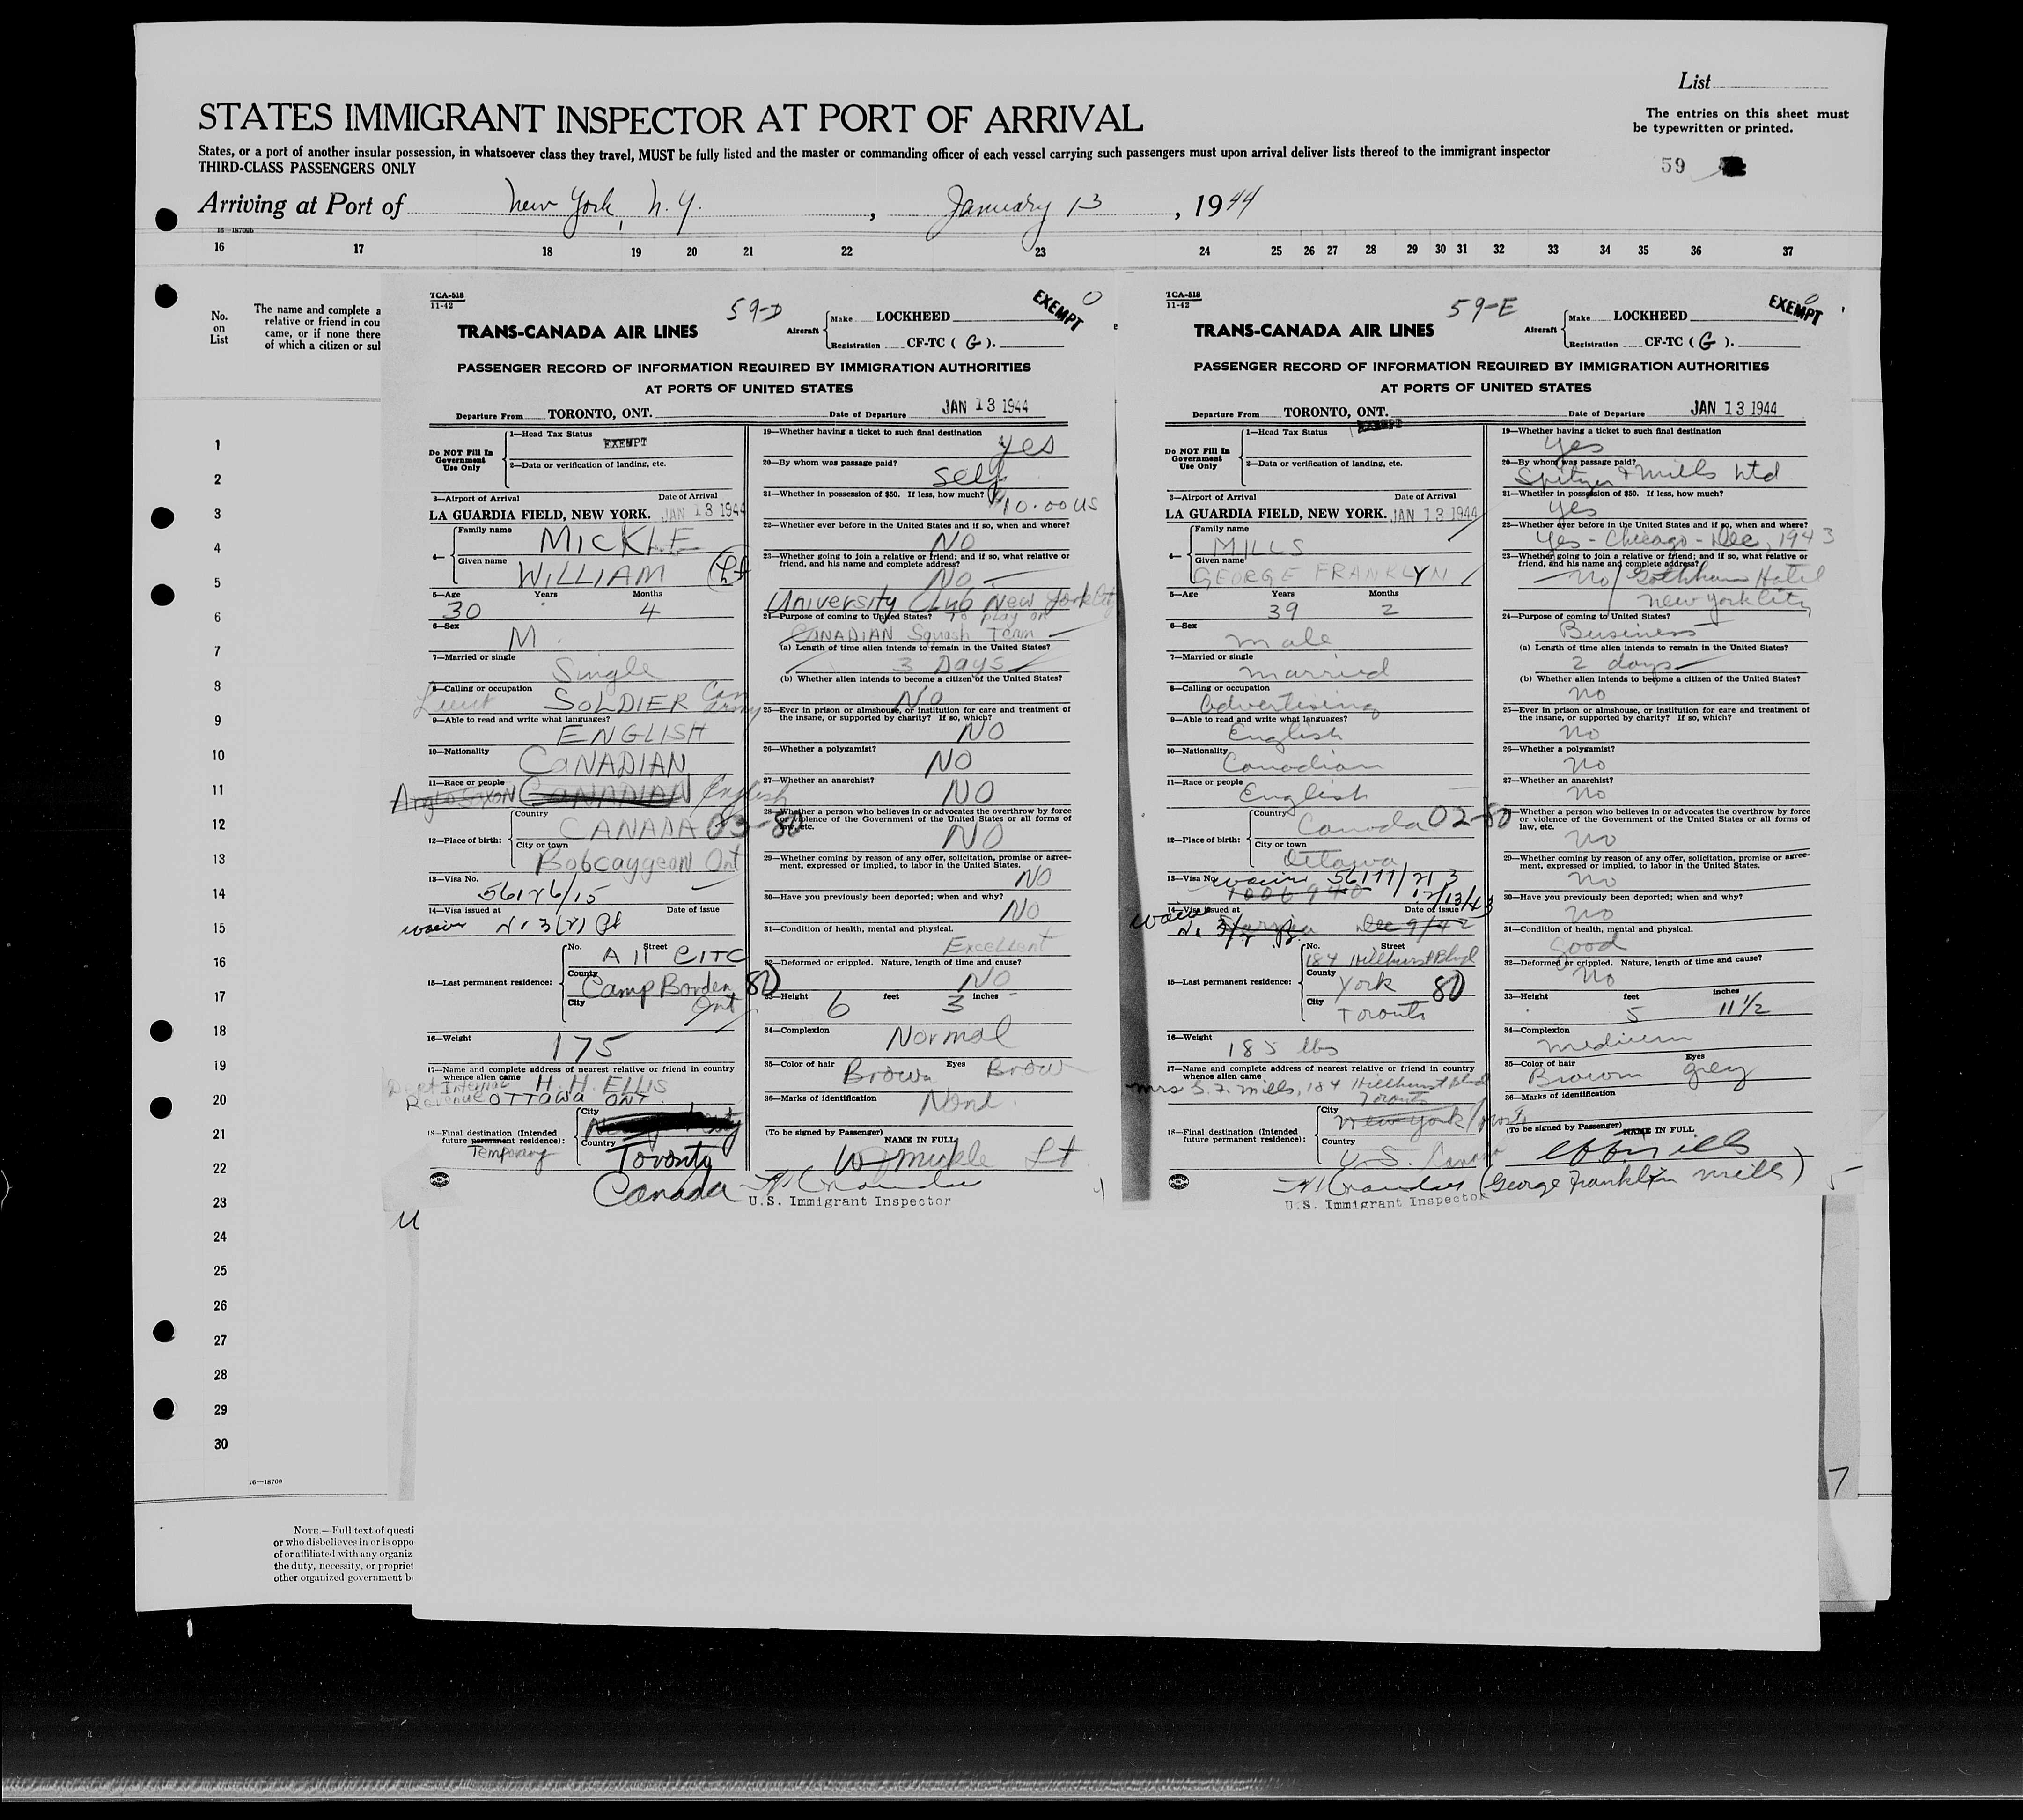 List
STATES IMMIGRANT INSPECTOR AT PORT OF ARRIVAL
The entries on this sheet must
be typewritten or printed.
States, or a port of another insular possession, in whatsoever class they travel, MUST be fully listed and the master or commanding officer of each vessel carrying such passengers must upon arrival deliver lists thereof to the immigrant inspector
THIRD-CLASS PASSENGERS ONLY
59
Arriving at Port of New York, N.Y. , January 13 , 1944
16 17 18 19 20 21 22 23 24 25 26 27 28 29 30 31 32 33 34 35 36 37
No.
on
List
The name and complete a
relative or friend in cou
came, or if none there
of which a citizen or sul
1
2
3
4
5
6
7
8
9
10
11
12
13
14
15
16
17
18
19
20
21
22
23
24
25
26
27
28
29
30
16—18709
NOTE.—Full text of questi
or who disbelieves in or is oppo
of or affiliated with any organiz
the duty, necessity, or propriet
other organized government be
TCA-518
11-42
59-D
EXEMPT
TRANS-CANADA AIR LINES
Aircraft Make LOCKHEED
Registration CF-TC ( G ).
PASSENGER RECORD OF INFORMATION REQUIRED BY IMMIGRATION AUTHORITIES
AT PORTS OF UNITED STATES
Departure From TORONTO, ONT. Date of Departure JAN 13 1944
Do NOT Fill In
Government
Use Only
1—Head Tax Status EXEMPT
2—Data or verification of landing, etc.
3—Airport of Arrival Date of Arrival
LA GUARDIA FIELD, NEW YORK. JAN 13 1944
4— Family name MICKLE
Given name WILLIAM (Lt)
5—Age Years Months
30 4
6—Sex M
7—Married or single Single
8—Calling or occupation
Lieut SOLDIER Can Army
9—Able to read and write what languages?
ENGLISH
10—Nationality CANADIAN
11—Race or people
Anglo Saxon CANADIAN English
12—Place of birth: Country CANADA 03-80
City or town Bobcaygeon Ont
13—Visa No. 56126/15
14—Visa issued at Date of issue
waiver
15—Last permanent residence: No. Street A 11 CITC
County Camp Borden 80
City Ont
16—Weight 175
17—Name and complete address of nearest relative or friend in country
whence alien came H. H. ELLIS
Dept Internal
Revenue OTTAWA ONT.
18—Final destination (Intended
future permanent residence): City
Temporary
Country Toronto
Canada
19—Whether having a ticket to such final destination
yes
20—By whom was passage paid?
Self
21—Whether in possession of $50. If less, how much? $10.00 US
22—Whether ever before in the United States and if so, when and where?
NO
23—Whether going to join a relative or friend; and if so, what relative or
friend, and his name and complete address?
NO
University Club New York City
24—Purpose of coming to United States? To play on
CANADIAN Squash Team
(a) Length of time alien intends to remain in the United States?
3 Days
(b) Whether alien intends to become a citizen of the United States?
NO
25—Ever in prison or almshouse, or institution for care and treatment of
the insane, or supported by charity? If so, which?
NO
26—Whether a polygamist?
NO
27—Whether an anarchist?
NO
28—Whether a person who believes in or advocates the overthrow by force
or violence of the Government of the United States or all forms of
law, etc.
NO
29—Whether coming by reason of any offer, solicitation, promise or agree-
ment, expressed or implied, to labor in the United States.
NO
30—Have you previously been deported; when and why?
NO
31—Condition of health, mental and physical.
Excellent
32—Deformed or crippled. Nature, length of time and cause?
NO
33—Height 6 feet 3 inches
34—Complexion Normal
35—Color of hair Brown Eyes Brown
36—Marks of identification None.
(To be signed by Passenger)
NAME IN FULL
W Mickle Lt
U.S. Immigrant Inspector
TCA-518
11-42
59-E
EXEMPT
TRANS-CANADA AIR LINES
Aircraft Make LOCKHEED
Registration CF-TC ( G ).
PASSENGER RECORD OF INFORMATION REQUIRED BY IMMIGRATION AUTHORITIES
AT PORTS OF UNITED STATES
Departure From TORONTO, ONT. Date of Departure JAN 13 1944
Do NOT Fill In
Government
Use Only
1—Head Tax Status EXEMPT
2—Data or verification of landing, etc.
3—Airport of Arrival Date of Arrival
LA GUARDIA FIELD, NEW YORK. JAN 13 1944
4— Family name MILLS
Given name GEORGE FRANKLYN
5—Age Years Months
39 2
6—Sex male
7—Married or single married
8—Calling or occupation
Advertising
9—Able to read and write what languages?
English
10—Nationality Canadian
11—Race or people English
12—Place of birth: Country Canada 02-80
City or town Ottawa
13—Visa No. waiver 56111/213
1006940 12/13/43
14—Visa issued at Date of issue
waiver Dec 9/42
15—Last permanent residence: No. Street 184 Hillhurst Blvd
County York 80
City Toronto
16—Weight 185 lbs
17—Name and complete address of nearest relative or friend in country
whence alien came
Mrs G. F. Mills, 184 Hillhurst Blvd
Toronto
18—Final destination (Intended
future permanent residence): City New York
Country U.S. Canada
19—Whether having a ticket to such final destination
yes
20—By whom was passage paid?
Spitzer & Mills Ltd
21—Whether in possession of $50. If less, how much?
yes
22—Whether ever before in the United States and if so, when and where?
Yes - Chicago - Dec, 1943
23—Whether going to join a relative or friend; and if so, what relative or
friend, and his name and complete address?
no / Gothham Hotel
New York City
24—Purpose of coming to United States?
Business
(a) Length of time alien intends to remain in the United States?
2 days
(b) Whether alien intends to become a citizen of the United States?
no
25—Ever in prison or almshouse, or institution for care and treatment of
the insane, or supported by charity? If so, which?
no
26—Whether a polygamist?
no
27—Whether an anarchist?
no
28—Whether a person who believes in or advocates the overthrow by force
or violence of the Government of the United States or all forms of
law, etc.
no
29—Whether coming by reason of any offer, solicitation, promise or agree-
ment, expressed or implied, to labor in the United States.
no
30—Have you previously been deported; when and why?
no
31—Condition of health, mental and physical.
good
32—Deformed or crippled. Nature, length of time and cause?
no
33—Height feet 5 inches 11 1/2
34—Complexion medium
35—Color of hair Brown Eyes grey
36—Marks of identification
(To be signed by Passenger) NAME IN FULL
G F Mills
(George Franklin Mills)
U.S. Immigrant Inspector
7